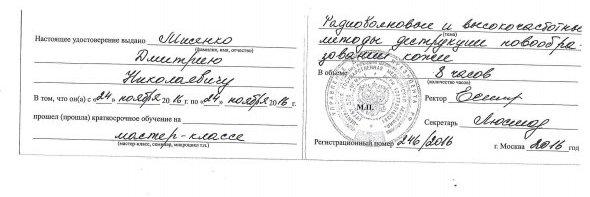 Настоящее удостоверение выдано Мисенко
(фамилия, имя, отчество)
Дмитрию
Николаевичу
В том, что он(а) с «24» ноября 2016 г. по «24» ноября 2016 г.
прошел (прошла) краткосрочное обучение на
мастер-классе
(мастер класс, семинар, микроцикл т.п.)
Радиоволновые и высокочастотные
(тема)
методы деструкции новообра-
зований кожи
В объеме 8 часов
(количество часов)
М.П.
Ректор
Секретарь
Регистрационный номер 246/2016
г. Москва 2016 год